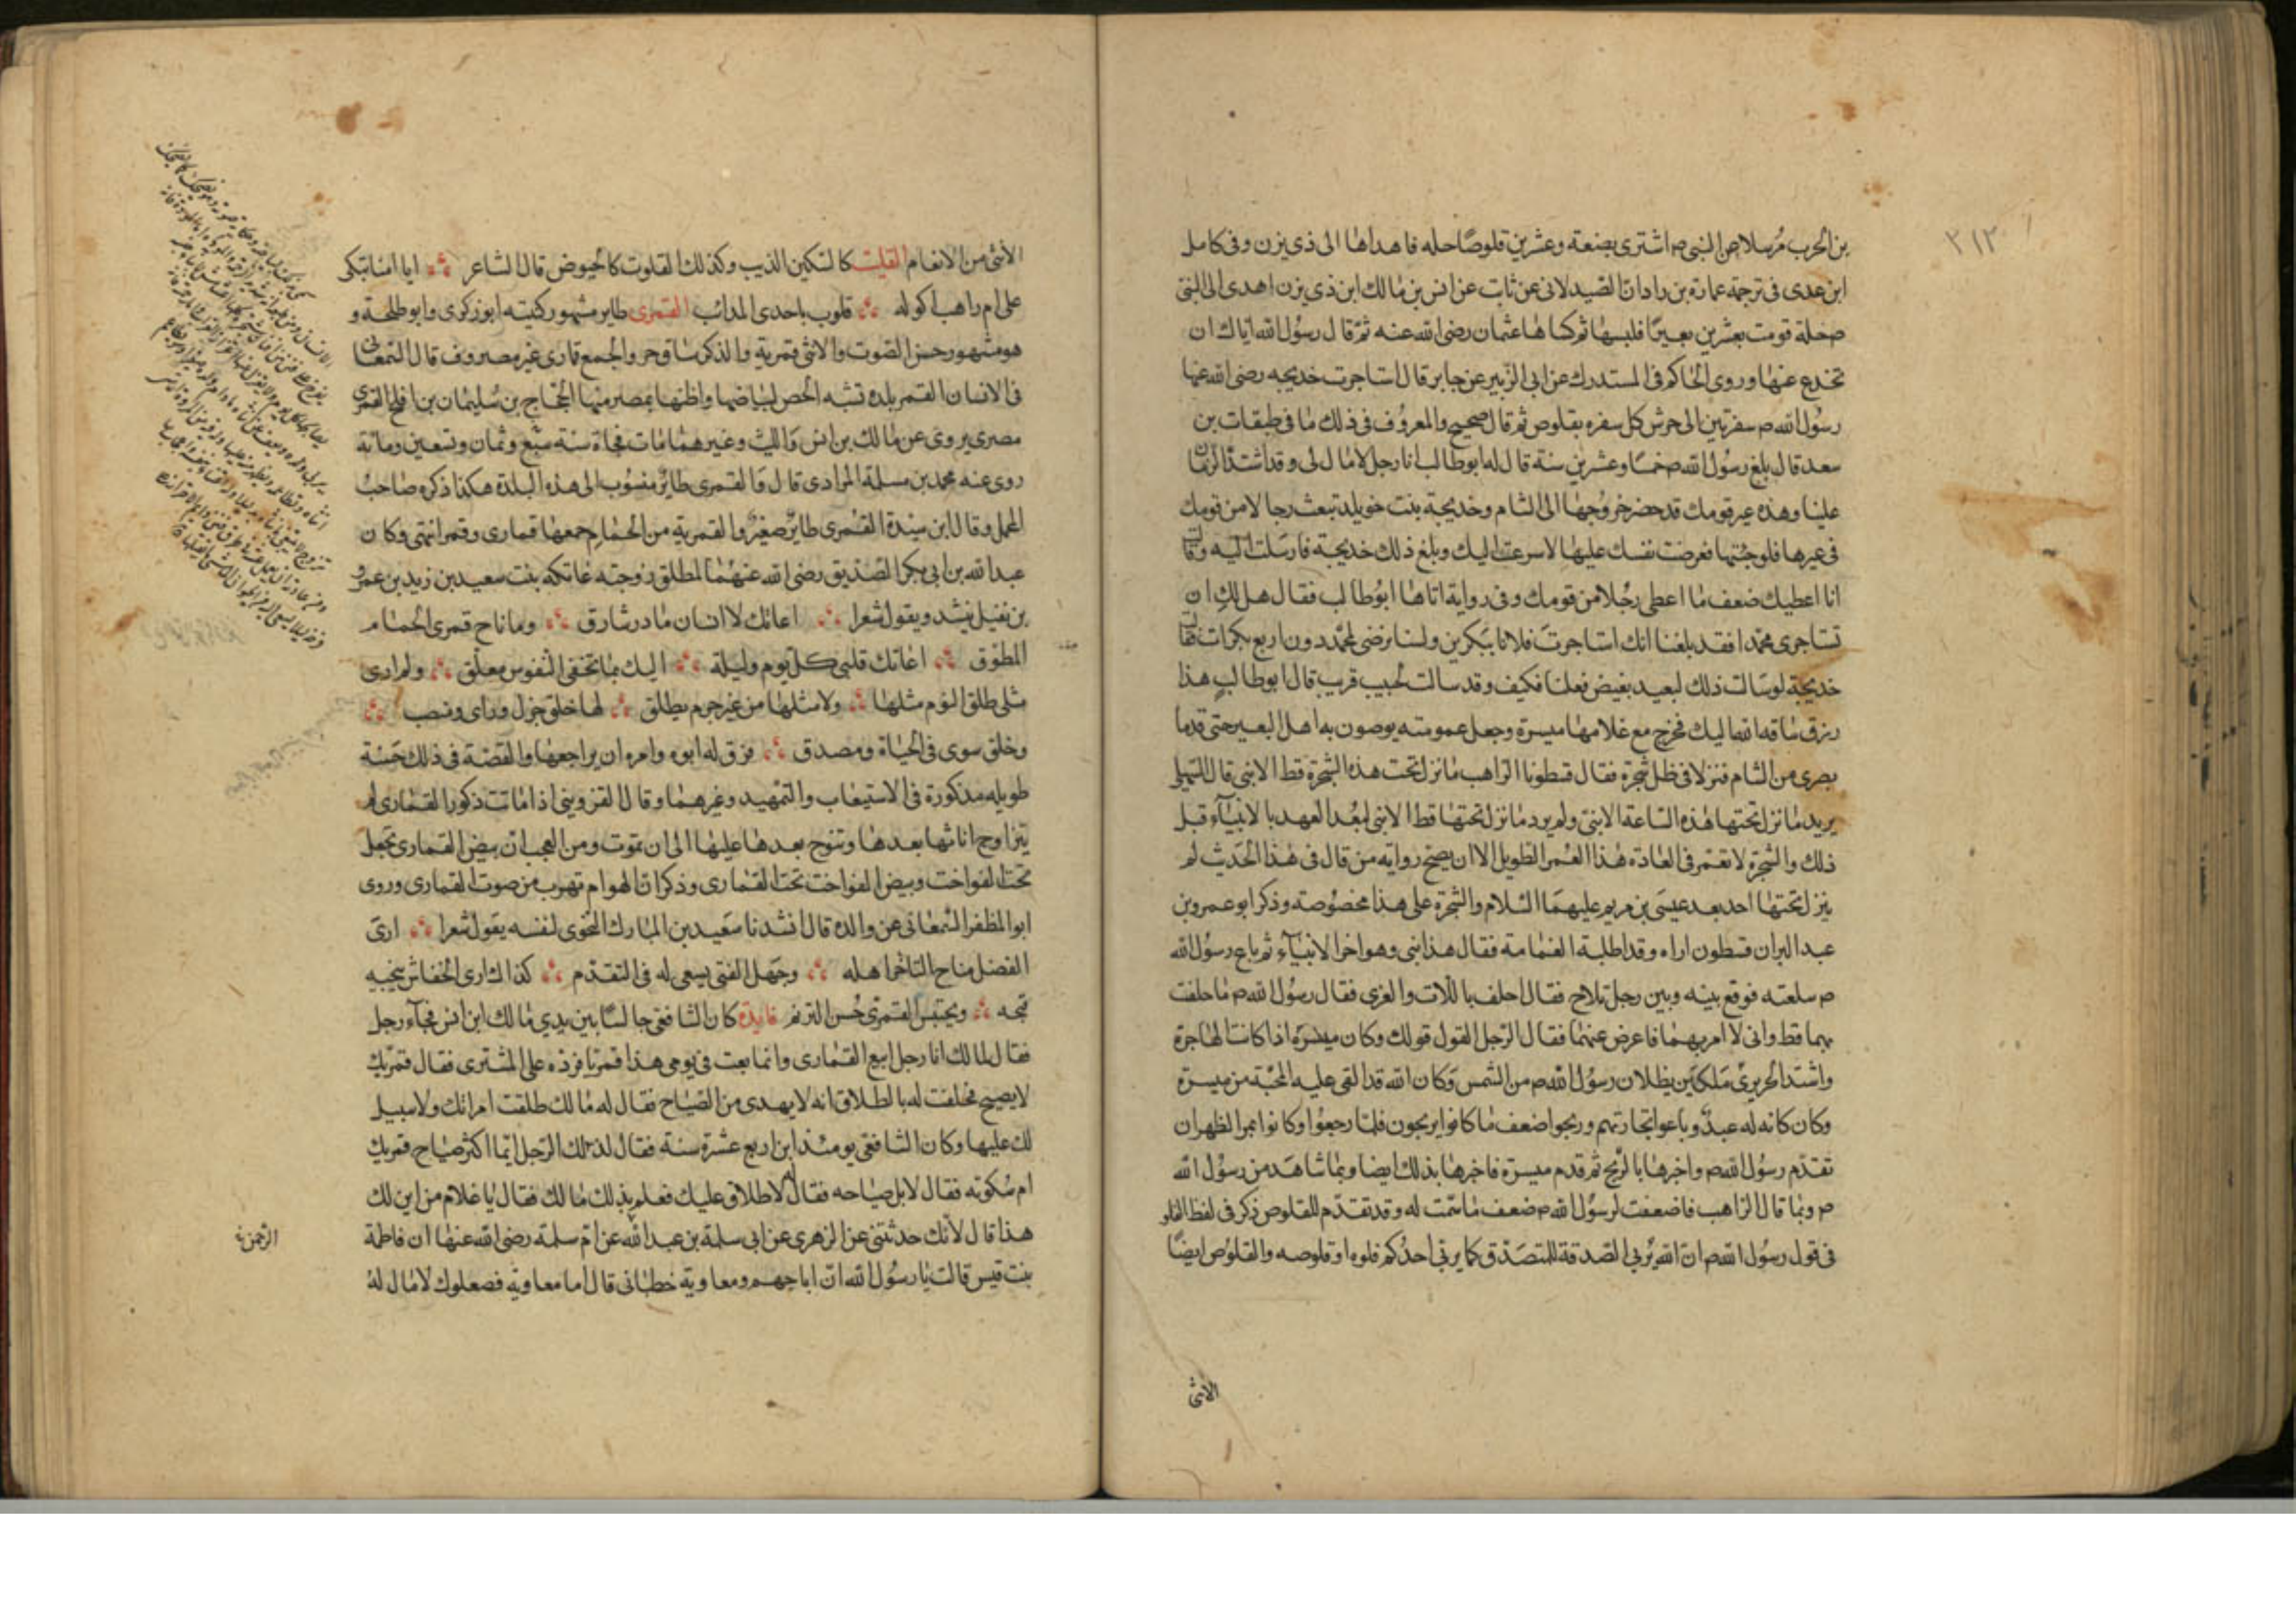 ٣١٢
بن الحرب مرسلا عن النبي ص اشترى بضعة وعشرين قلوصا حله فاهداها الى ذى يزن وفى كامل
ابن عدى فى ترجمة عمارة بن زادان الصيدلانى عن ثابت عن انس بن مالك ابن ذى يزن اهدى الى النبى
ص حلة قومت بعشرين بعيرا فلبسها ثم كساها عثمان رضى الله عنه ثم قال رسول الله اياك ان
تخدع عنها وروى الحاكم فى المستدرك عن ابى الزبير عن جابر قال استاجرت خديجه رضى الله عنها
رسول الله ص سفرتين الى جرش كل سفره بقلوص ثم قال صحيح والمعروف فى ذلك ما فى طبقات بن
سعد قال بلغ رسول الله ص خمسا وعشرين سنة قال له ابو طالب انا رجل لا مال لى وقد اشتد الزمان
علينا وهذه عير قومك قد حضر خروجها الى الشام وخديجة بنت خويلد تبعث رجالا من قومك
فى عيرها فلو جئتها فعرضت نفسك عليها لاسرعت اليك وبلغ ذلك خديجة فارسلت اليه وقالت
انا اعطيك ضعف ما اعطى رجلا من قومك وفى رواية اتاها ابو طالب فقال هل لك ان
تستاجرى محمدا فقد بلغنا انك استاجرت فلانا ببكرين ولسنا نرضى لمحمد دون اربع بكرات قالت
خديجة لو سالت ذلك لبعيد بغيض فعلنا فكيف وقد سالت لحبيب قريب قال ابو طالب هذا
رزق ساقه الله اليك فخرج مع غلامها ميسرة وجعل عمومته يوصون به اهل البعير حتى قدما
بصرى من الشام فنزلا فى ظل شجرة فقال قسطونا الراهب ما نزل تحت هذه الشجرة قط الا نبى قال السهيلى
يريد ما نزل تحتها هذه الساعة الا نبى ولم يرد ما نزل تحتها قط الا نبى لبعد العهد بالانبياء قبل
ذلك والشجرة لا تعمر فى العادة هذا العمر الطويل الا ان يصح رواية من قال فى هذا الحديث لم
ينزل تحتها احد بعد عيسى بن مريم عليهما السلام والشجرة على هذا مخصوصة وذكر ابو عمرو بن
عبد البر ان قسطون اراه وقد اظلته الغمامة فقال هذا نبى وهو اخر الانبياء ثم باع رسول الله
ص سلعته فوقع بينه وبين رجل تلاح فقال احلف باللات والعزى فقال رسول الله ص ما حلفت
بهما قط وانى لا امر بهما فاعرض عنهما فقال الرجل القول قولك وكان ميسرة اذا كانت الهاجرة
واشتد الحر يرى ملكين يظلان رسول الله ص من الشمس وكان الله قد القى عليه المحبة من ميسرة
وكان كانه له عبد وباعوا تجارتهم وربحوا ضعف ما كانوا يربحون فلما رجعوا وكانوا بمر الظهران
تقدم رسول الله ص واخبرها بالربح ثم قدم ميسرة فاخبرها بذلك ايضا وبما شاهد من رسول الله
ص وبما قال الراهب فاضعفت لرسول الله ص ضعف ما سمت له وقد تقدم للقلوص ذكر فى لفظ الفلو
فى قول رسول الله ص ان الله يربى الصدقة للمتصدق كما يربى احدكم فلوه او قلوصه والقلوص ايضا
الانثى
الأنثى من الانعام القليت كالسكين الذيب وكذلك القلوت كالحيوض قال الشاعر ايا امنا تبكى
على ام راهب اكوله قلوب باحدى المدائب القمرى طاير مشهور كنيته ابو زكرى وابو طلحة و
هو مشهور حسن الصوت والانثى قمرية والذكر ساق حر والجمع قمارى غير مصروف قال السمعانى
فى الانساب القمر بلدة تشبه الجص لبياضها واظنها بمصر منها الحجاج بن سليمان بن افلح القمرى
مصرى يروى عن مالك بن انس والليث وغيرهما مات فجاة سنة سبع وثمان وتسعين ومائة
روى عنه محمد بن مسلمة المرادى قال والقمرى طائر منسوب الى هذه البلدة هكذا ذكره صاحب
المجمل وقال ابن سيدة القمرى طائر صغير والقمرية من الحمام جمعها قمارى وقمر انتهى وكان
عبد الله بن ابى بكر الصديق رضى الله عنهما لما طلق زوجته عاتكه بنت سعيد بن زيد بن عمرو
بن نفيل ينشد ويقول شعرا اعاتك لا انسان ما در شارق وما ناح قمرى الحمام
المطوق اعاتك قلبى كل يوم وليلة اليك بما تخفى النفوس معلق ولم ارى
مثلى طلق اليوم مثلها ولا مثلها من غير جرم يطلق لها خلق جزل وراى ونصب
وخلق سوى فى الحياة ومصدق فرق له ابوه وامره ان يراجعها والقصة فى ذلك حسنة
طويله مذكورة فى الاستيعاب والتمهيد وغيرهما وقال القزوينى اذا ماتت ذكور القمارى لم
يتزاوج اناثها بعدها وتنوح بعدها عليها الى ان تموت ومن العجب ان بيض القمارى تجعل
تحت الفواخت وبيض الفواخت تحت القمارى وذكر ان الهوام تهرب من صوت القمارى وروى
ابو المظفر السمعانى عن والده قال انشدنا سعيد بن المبارك النحوى لنفسه يقول شعرا ارى
الفضل مناح التاخر اهله وجهل الفتى يسعى له فى التقدم كذاك ارى الخفاش ينجيه
قبحه ويحتبس القمرى حسن الترنم فايدة كان الشافعى جالسا بين يدي مالك ابن انس فجآء رجل
فقال لمالك انا رجل ابيع القمارى وانما بعت فى يومى هذا قمريا فرده على المشترى فقال قمريك
لا يصيح فحلفت له بالطلاق انه لا يهدى من الصياح فقال له مالك طلقت امراتك ولا سبيل
لك عليها وكان الشافعى يومئذ ابن اربع عشرة سنة فقال لذلك الرجل ايما اكثر صياح قمريك
ام سكوته فقال لا بل صياحه فقال لا طلاق عليك فعلم بذلك مالك فقال يا غلام من اين لك
هذا قال لأنك حدثتنى عن الزهرى عن ابى سلمة بن عبد الله عن ام سلمة رضى الله عنها ان فاطمة
بنت قيس قالت يا رسول الله ان ابا جهم ومعاوية خطبانى قال اما معاوية فصعلوك لا مال له
الرحمن